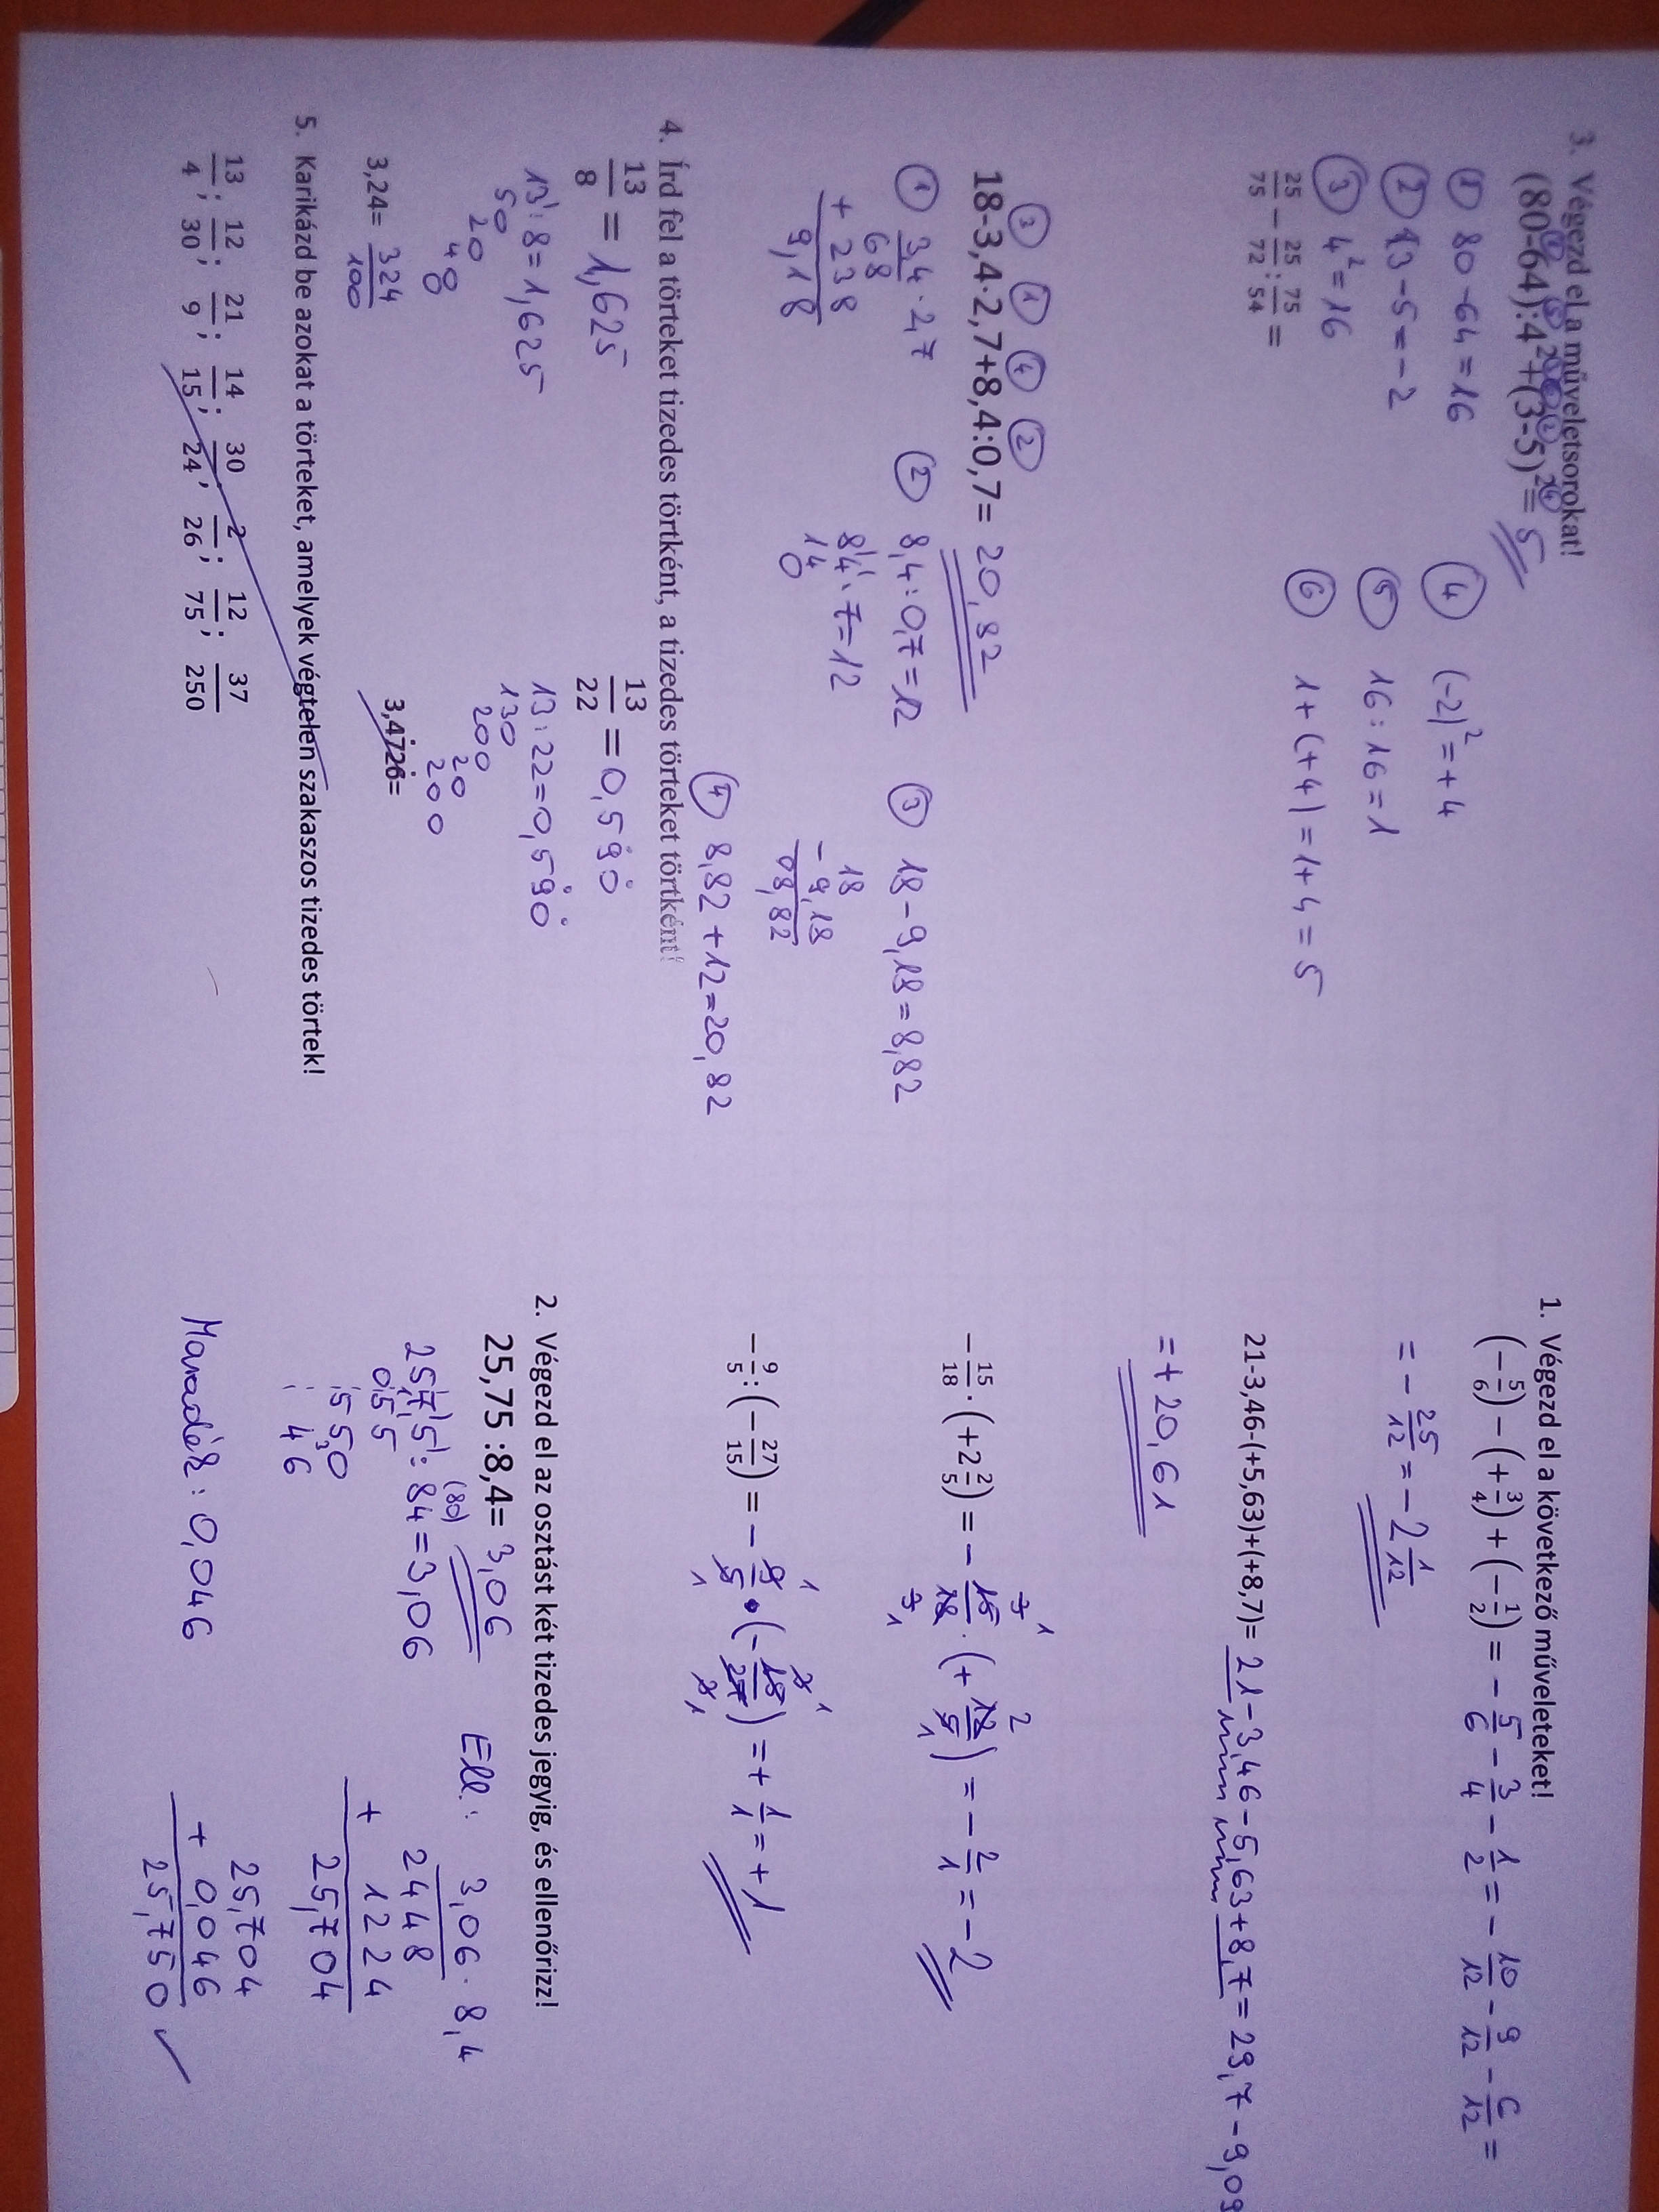 1. Végezd el a következő műveleteket!
(-5/6) - (+3/4) + (-1/2) = -5/6 - 3/4 - 1/2 = -10/12 - 9/12 - 6/12 =
= -25/12 = -2 1/12
21-3,46-(+5,63)+(+8,7)= 21-3,46-5,63+8,7= 29,7-9,09
= +20,61
-15/18 · (+2 2/5) = -15/18 · (+12/5) = -2/1 = -2
-9/5 : (-27/15) = -9/5 · (-15/27) = +1/1 = +1
2. Végezd el az osztást két tizedes jegyig, és ellenőrizz!
25,75 :8,4= 3,06
(80)
257,5 : 84 = 3,06
055
550
46
Maradék : 0,046
Ell.: 3,06 · 8,4
2448
+ 1224
25,704
25,704
+ 0,046
25,750 ✓
3. Végezd el a műveletsorokat!
(80-64):4²+(3-5)²= 5
① 80-64=16
② 3-5=-2
③ 4²=16
④ (-2)²=+4
⑤ 16:16=1
⑥ 1+(+4)=1+4=5
25/75 - 25/72 : 75/54 =
③ ① ④ ②
18-3,4·2,7+8,4:0,7= 20,82
① 3,4 · 2,7
68
+ 238
9,18
② 8,4:0,7=12
84:7=12
14
0
③ 18-9,18=8,82
18
- 9,18
08,82
④ 8,82+12=20,82
4. Írd fel a törteket tizedes törtként, a tizedes törteket törtként!
13/8 = 1,625
13:8=1,625
50
20
40
0
13/22 = 0,59̇0̇
13:22=0,59̇0̇
130
200
20
200
3,24= 324/100
3,47̇26̇=
5. Karikázd be azokat a törteket, amelyek végtelen szakaszos tizedes törtek!
13/4; 12/30; 21/9; 14/15; 30/24; 2/26; 12/75; 37/250